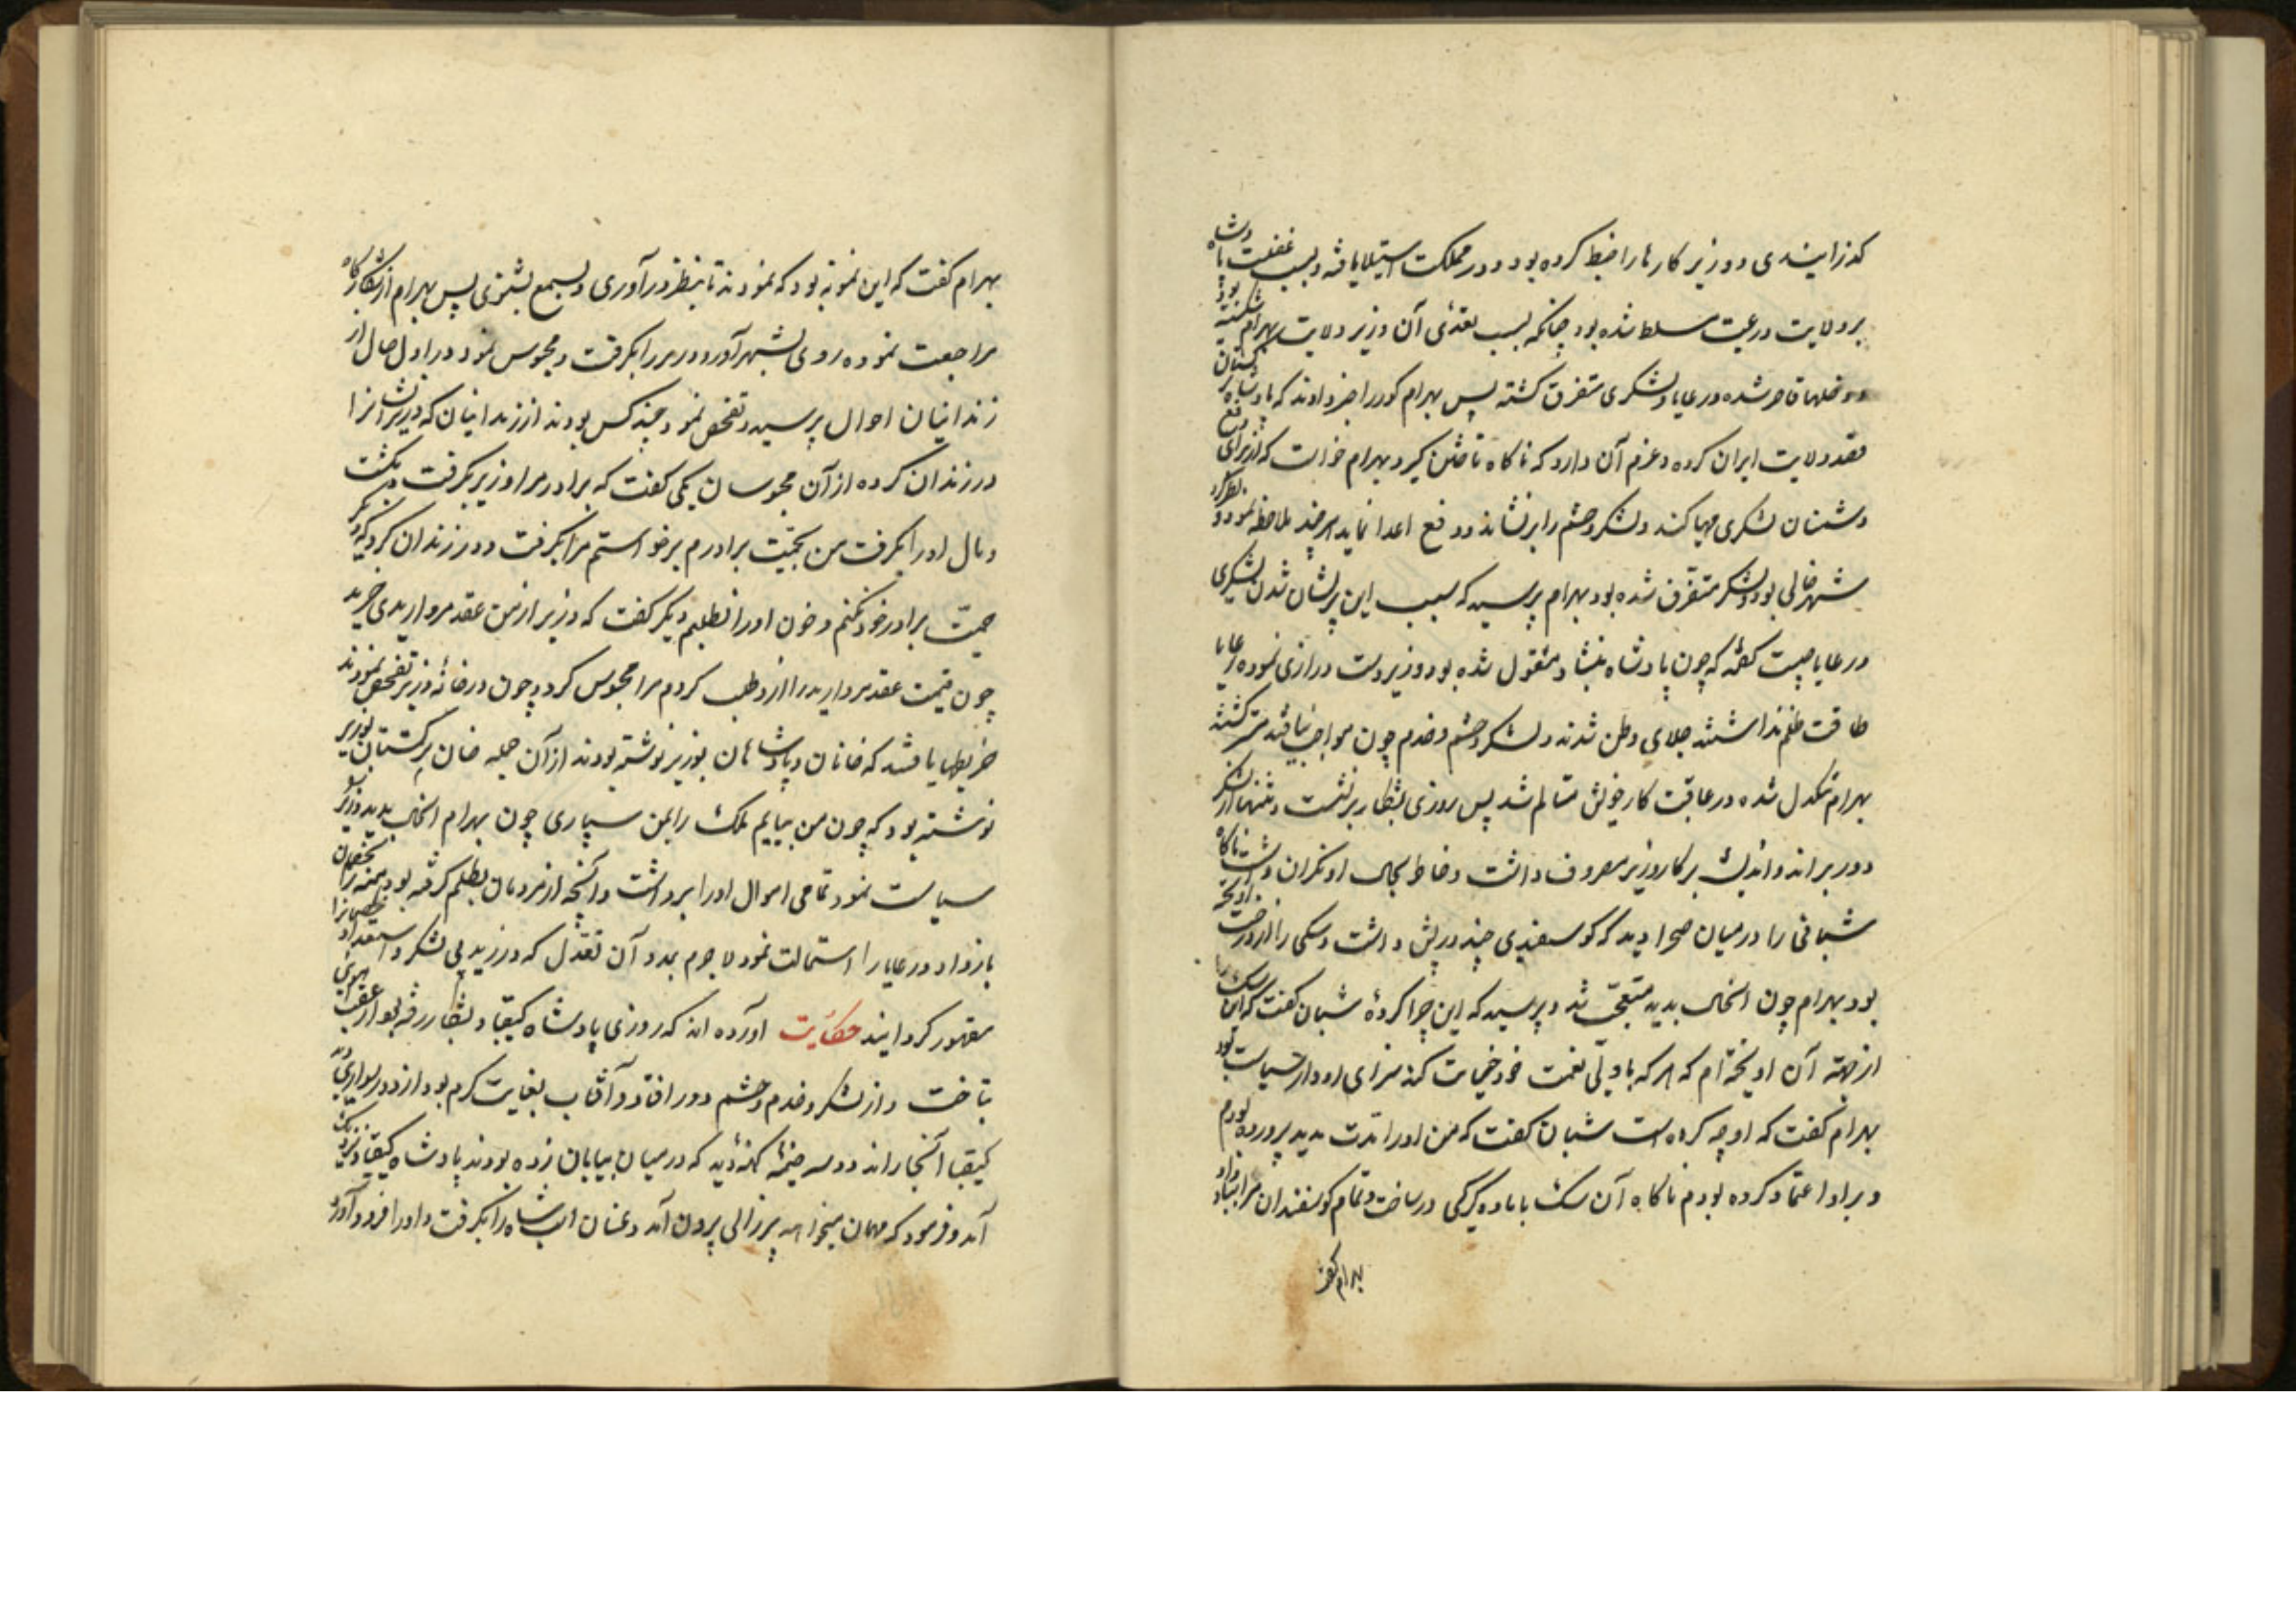 گذرانیدی و وزیر کارها را ضبط کرده بود و در مملکت استیلا یافته و بسبب غفلت پادشاه
بر ولایت و رعیت مسلط شده بود چنانکه بسبب تعدئ آن وزیر ولایت بهرام شکسته بود
و دخلها قاصر شده و رعایا و لشکری متفرق کشته پس بهرام کور را خبر دادند که پادشاه ترکستان
قصد ولایت ایران کرده و عزم آن دارد که ناکاه تاختن کیرد بهرام خواست که از برای دفع
دشمنان لشکری مهیا کند و لشکر و حشم را برنشاند و دفع اعدا نماید هر چند ملاحظه نمود و نظر کرد
شهر خالی بود و لشکر متفرق شده بود بهرام پرسید که سبب این پریشان شدن لشکری
و رعایا چیست کفتند که چون پادشاه بنشاط مشغول شده بود وزیر دست درازی نموده رعایا
طاقت ظلم نداشتند جلای وطن شدند و لشکر و حشم و خدم چون مواجب نیافتند متفرق کشتند
بهرام تنکدل شده در عاقبت کار خویش متالم شد پس روزی بشکار برنشست و تنها از لشکر
دور براند و اندیشه بر کار وزیر مصروف داشت و خاطر بحال او نکران داشت ناکاه
شبانی را در میان صحرا دید که کوسفندی چند در پیش داشت و سکی را از درخت آویخته
بود بهرام چون آنحال بدید متعجب شد و پرسید که این چرا کردۀ شبان کفت که این سک را
از جهته آن آویخته‌ام که هر که با ولی نعمت خود خیانت کند سزای او دار سیاست بود
بهرام کفت که او چه کرده است شبان کفت که من او را مدت مدید پرورده بودم
و بر او اعتماد کرده بودم ناکاه آن سک با ماده کرکی در ساخت و تمام کوسفندان مرا بباد داد
بهرام کفت
بهرام کفت که این نمونه بود که نمودند تا بنظر در آوری و بسمع بشنوی پس بهرام از شکارکاه
مراجعت نموده روی بشهر آورد و وزیر را بکرفت و محبوس نمود در اول حال از
زندانیان احوال پرسید و تفحص نمود چند کس بودند از زندانیان که وزیر ایشانرا
در زندان کرده از آن محبوسان یکی کفت که برادر مرا وزیر بکرفت و بکشت
و مال او را بکرفت من بحمیت برادرم برخواستم مرا بکرفت و در زندان کرد که دیکر
حمیت برادر خود نکنم و خون او را نطلبم دیکر کفت که وزیر از من عقد مرواریدی خرید
چون قیمت عقد مروارید را از او طلب کردم مرا محبوس کرد و چون در خانۀ وزیر تفحص نمودند
خریطها یافتند که خانان و پادشاهان بوزیر نوشته بودند از آن جمله خان ترکستان بوزیر
نوشته بود که چون من بیایم ملک را بمن سپاری چون بهرام آنحال بدید وزیر را
سیاست نمود تمامی اموال او را برداشت و آنچه از مردمان بظلم کرفته بود همه را بخصمان
باز داد و رعایا را استمالت نمود لاجرم بمدد آن تعدل که ورزید بی لشکر و استعداد خصمانرا
مقهور کردانید حکایت آورده‌اند که روزی پادشاه کیقباد بشکار رفته بود از عقب آهوئی
بتاخت و از لشکر و خدم و حشم دور افتاد و آفتاب بغایت کرم بود از دور سوادی دید
کیقباد آنجا راند دو سه خیمۀ کهنه دید که در میان بیابان زده بودند پادشاه کیقباد نزدیک
آمد و فرمود که مهمان میخواهید پیرزالی بیرون آمد و عنان اسب شاه را بکرفت و او را فرود آورد